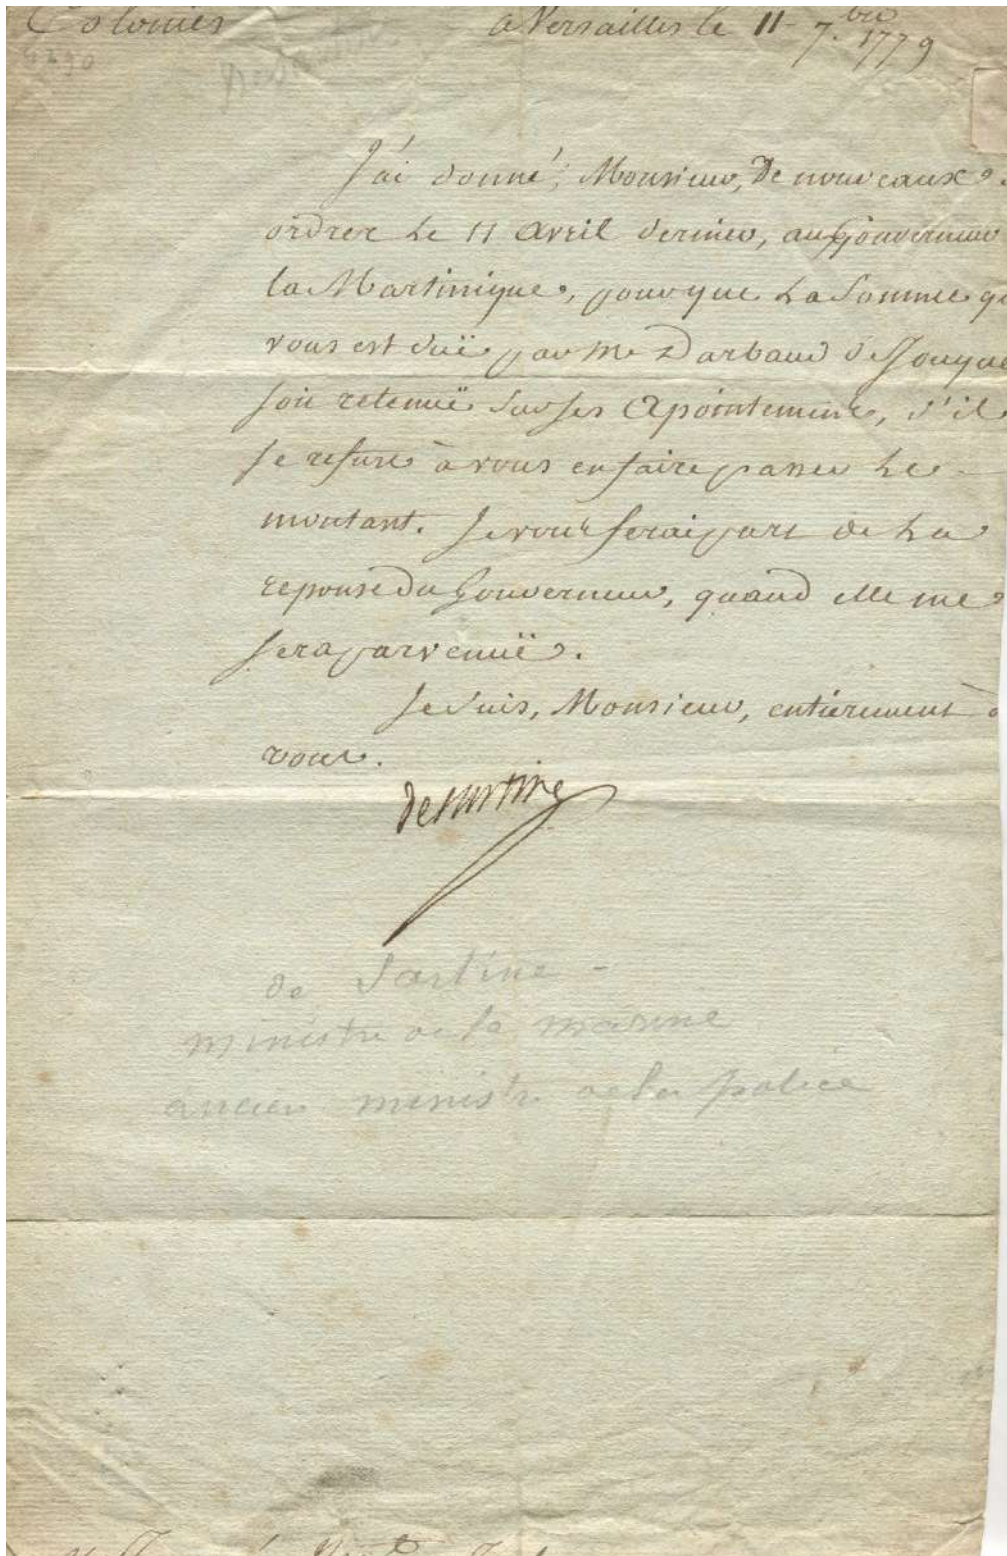 Colonies
a Versailles le 11 7.bre 1779
J'ai donné, Monsieur, de nouveaux
ordres le 11 avril dernier, au Gouverneur
la Martinique, pour que la somme q
vous est duë par Mr Darbaud de Jouque
soit retenuë sur ses apointemens, s'il
se refuse à vous en faire passer le
montant. Je vous ferai part de la
reponse du Gouverneur, quand elle me
sera parvenuë.
Je suis, Monsieur, entiérement à
vous.
de Sartine
de Sartine -
ministre de la marine
ancien ministre de la police